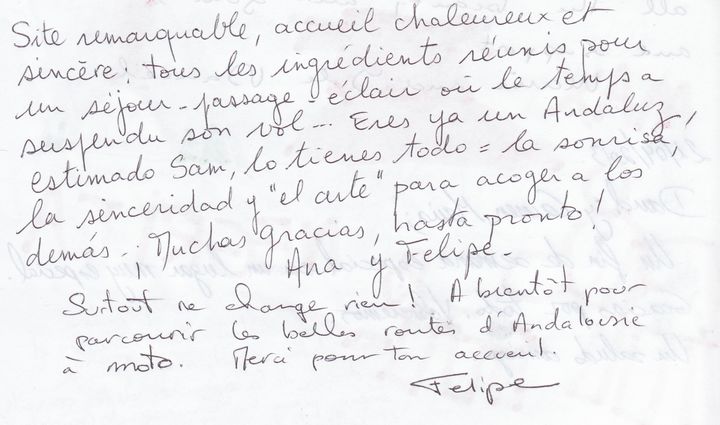 Site remarquable, accueil chaleureux et
sincère : tous les ingrédients réunis pour
un séjour-passage-éclair où le temps a
suspendu son vol... Eres ya un Andaluz,
estimado Sam, lo tienes todo = la sonrisa,
la sinceridad y "el arte" para acoger a los
demás. ¡ Muchas gracias, hasta pronto !
Ana y Felipe.
Surtout ne change rien ! A bientôt pour
parcourir les belles routes d'Andalousie
à moto. Merci pour ton accueil.
Felipe